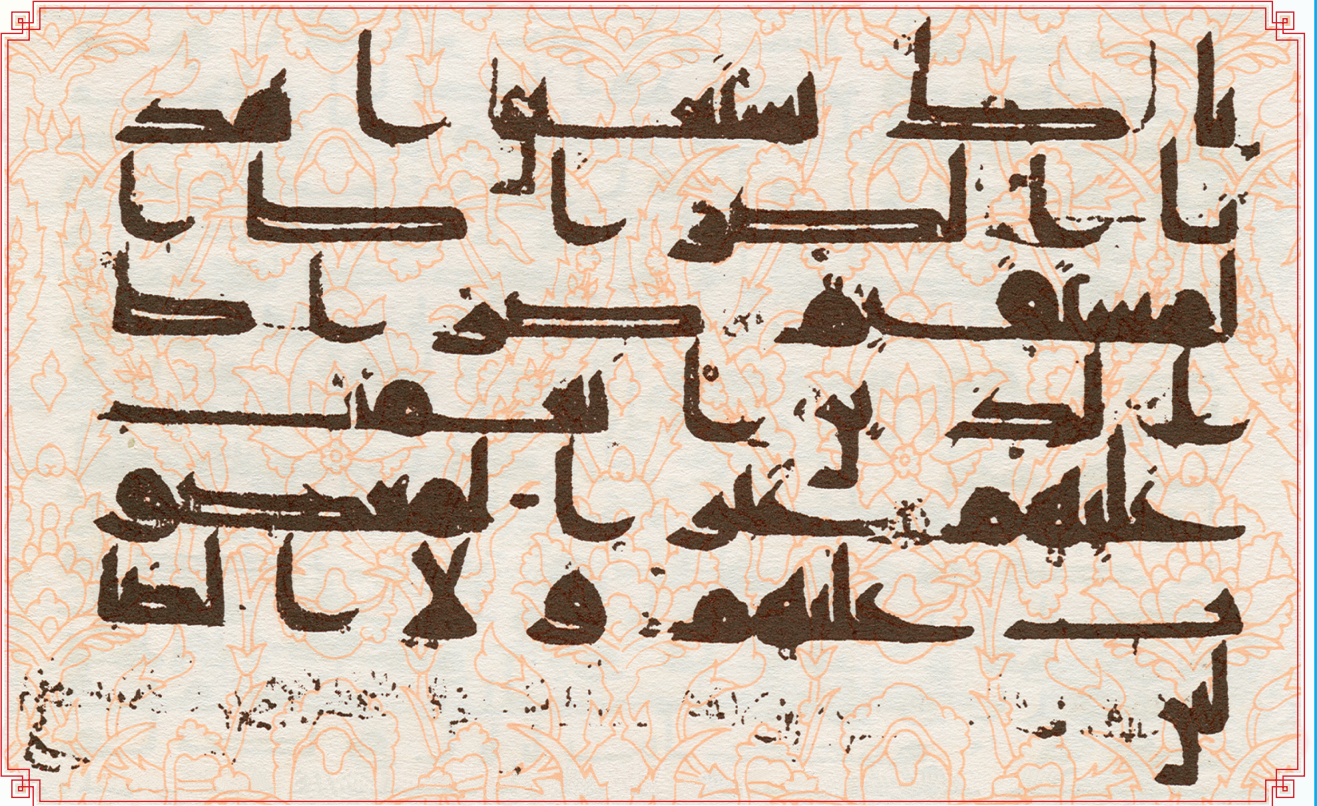 ياك نستعين اهد
نا الصراط ا
لمستقيم صراط
الذين انعمت
عليهم غير المغضو
ب عليهم ولا الضا
لين